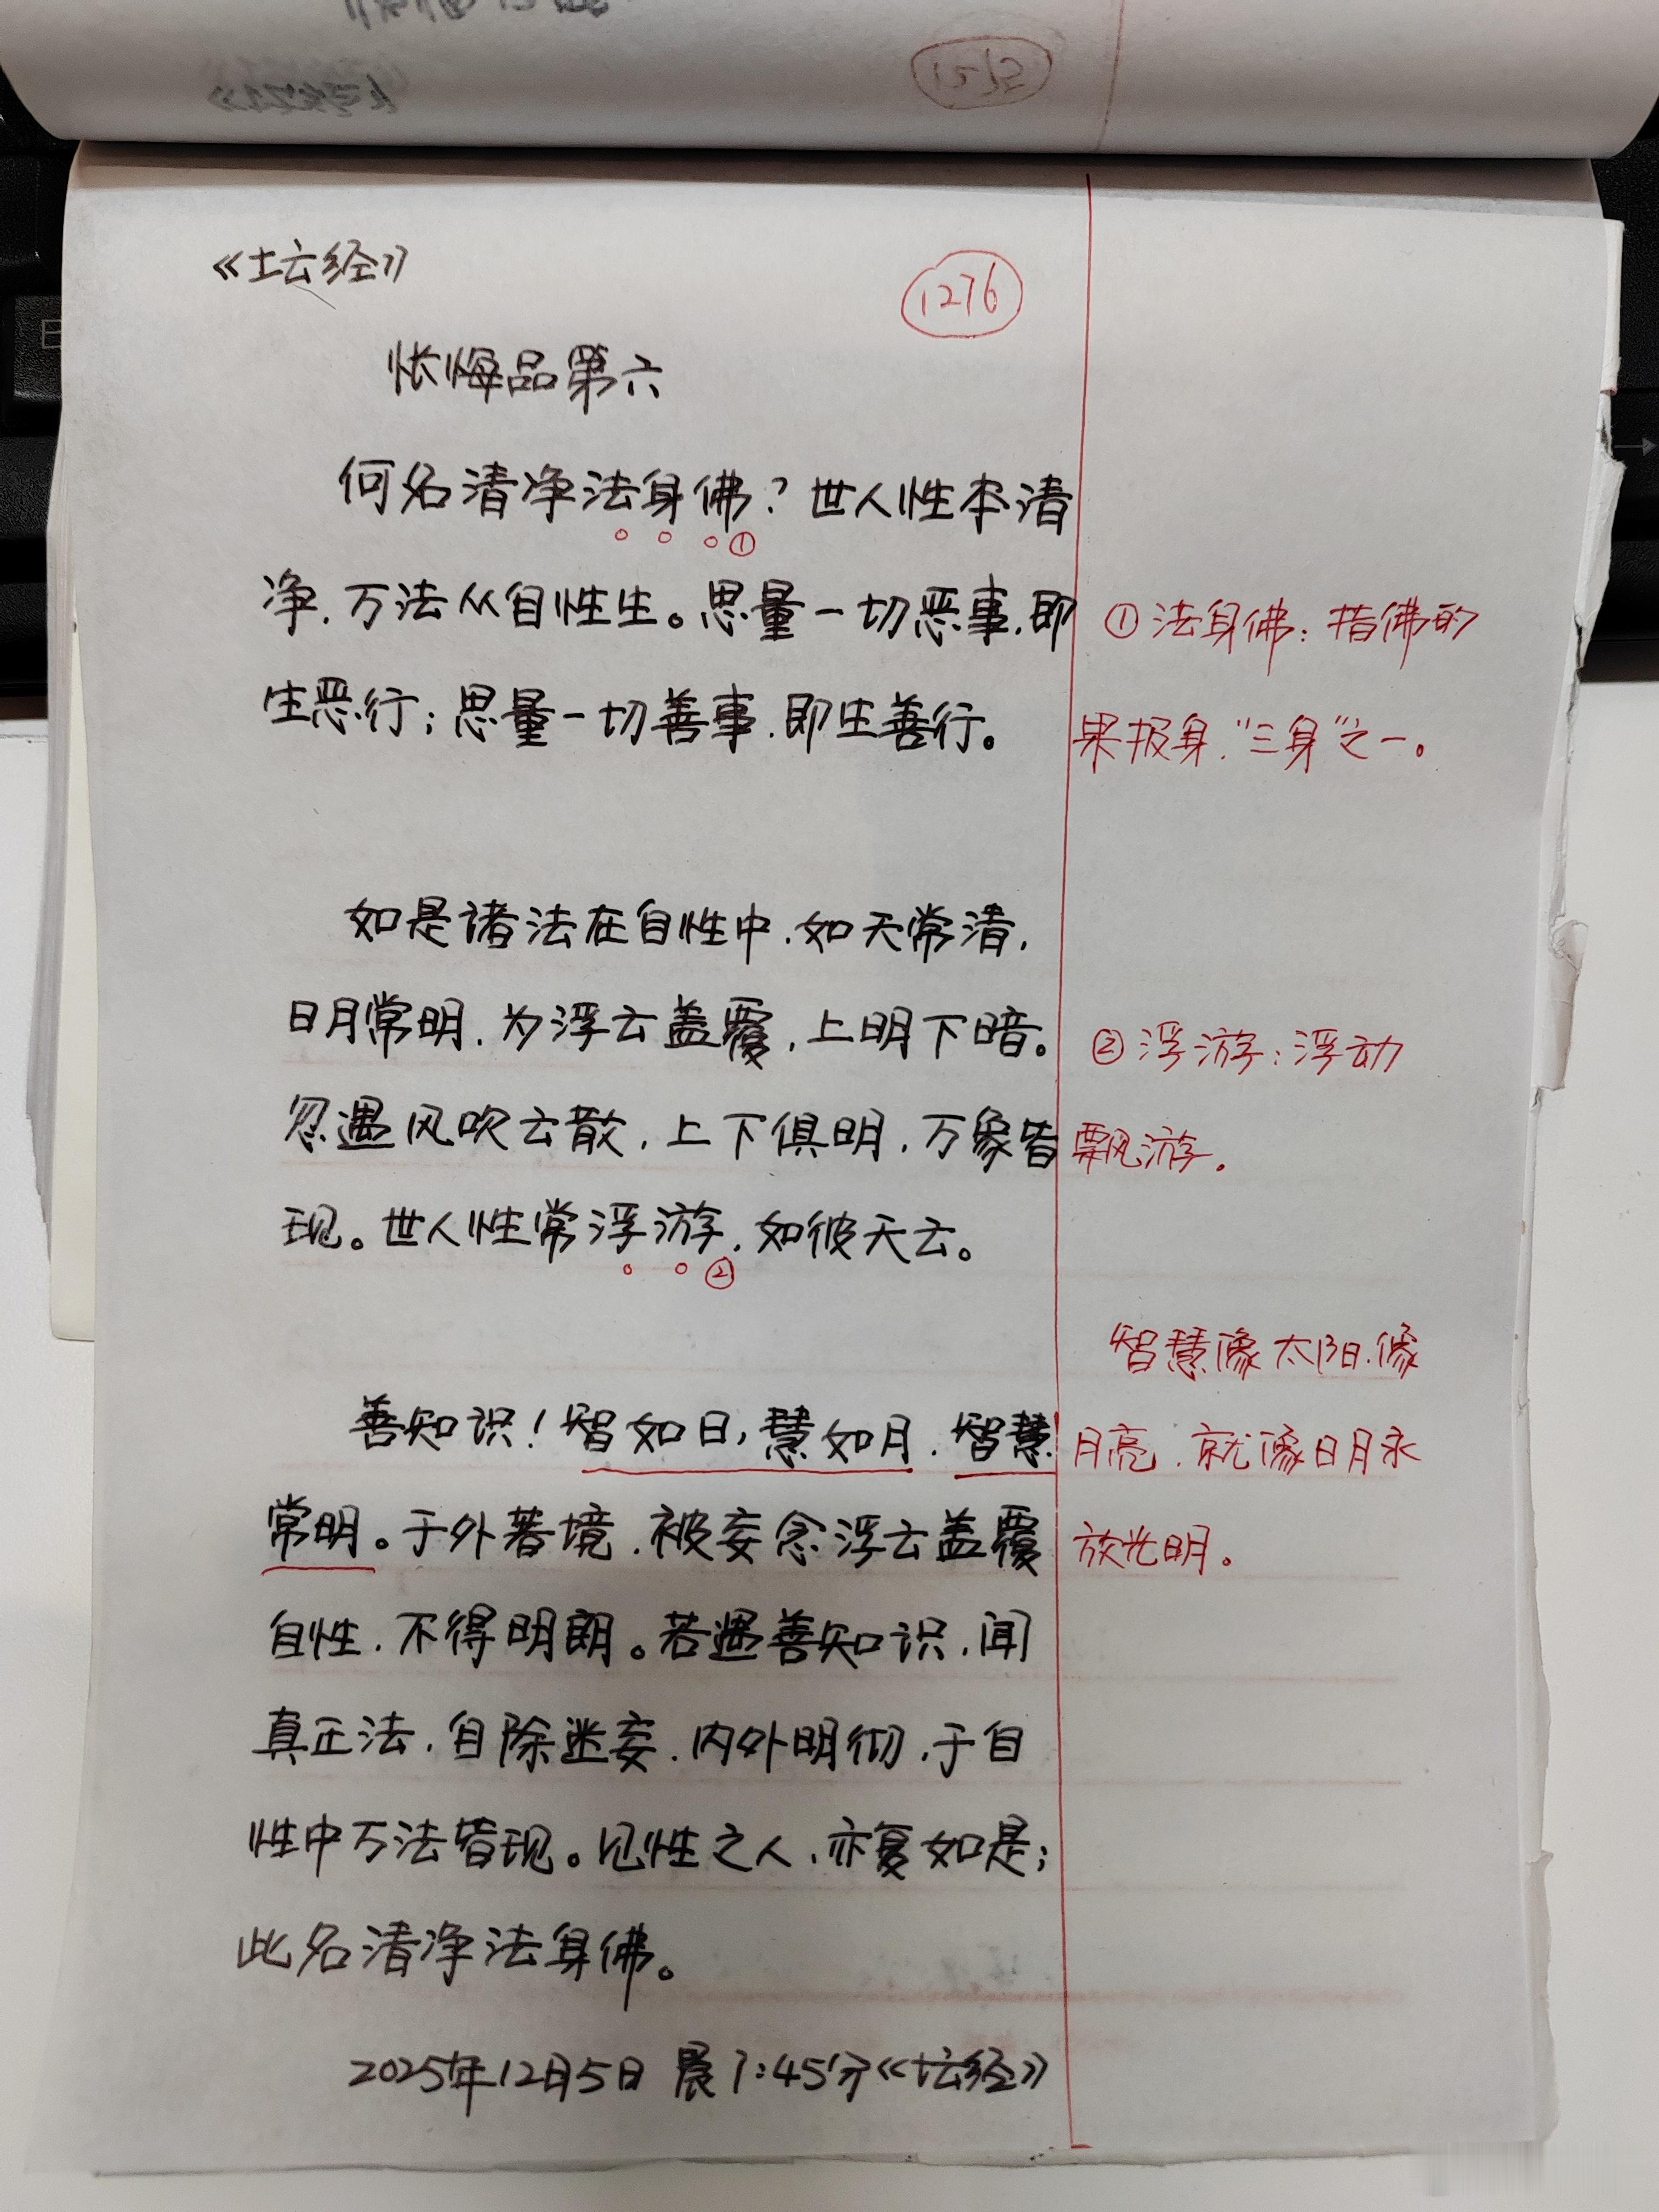 《坛经》
1276
怅悔品第六
何名清净法身佛？世人性本清
①
净，万法从自性生。思量一切恶事，即
生恶行；思量一切善事，即生善行。
如是诸法在自性中，如天常清，
日月常明，为浮云盖覆，上明下暗。
忽遇风吹云散，上下俱明，万象皆
现。世人性常浮游，如彼天云。
②
善知识！智如日，慧如月，智慧
常明。于外著境，被妄念浮云盖覆
自性，不得明朗。若遇善知识，闻
真正法，自除迷妄，内外明彻，于自
性中万法皆现。见性之人，亦复如是；
此名清净法身佛。
2025年12月5日 晨7:45分《坛经》
①法身佛：指佛的
果报身，“三身”之一。
②浮游：浮动
飘游。
智慧像太阳，像
月亮，就像日月永
放光明。